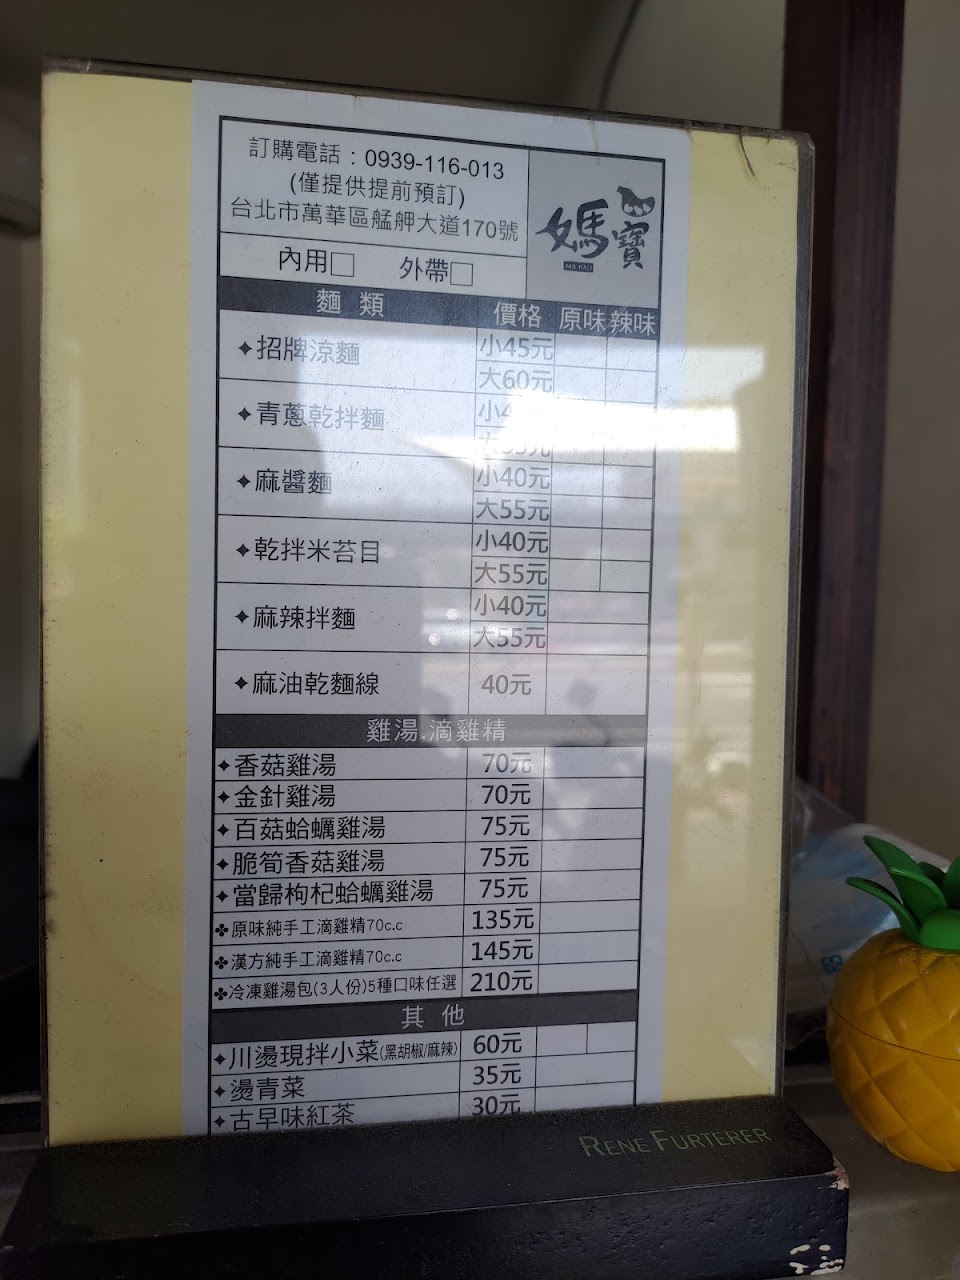 訂購電話：0939-116-013
(僅提供提前預訂)
台北市萬華區艋舺大道170號
媽寶
MA PAO
內用□ 外帶□
麵 類 價格 原味 辣味
✦招牌涼麵 小45元
大60元
✦青蔥乾拌麵 小4
✦麻醬麵 小40元
大55元
✦乾拌米苔目 小40元
大55元
✦麻辣拌麵 小40元
大55元
✦麻油乾麵線 40元
雞湯.滴雞精
✦香菇雞湯 70元
✦金針雞湯 70元
✦百菇蛤蠣雞湯 75元
✦脆筍香菇雞湯 75元
✦當歸枸杞蛤蠣雞湯 75元
✤原味純手工滴雞精70c.c 135元
✤漢方純手工滴雞精70c.c 145元
✤冷凍雞湯包(3人份)5種口味任選 210元
其 他
✦川燙現拌小菜(黑胡椒/麻辣) 60元
✦燙青菜 35元
✦古早味紅茶 30元
RENE FURTERER